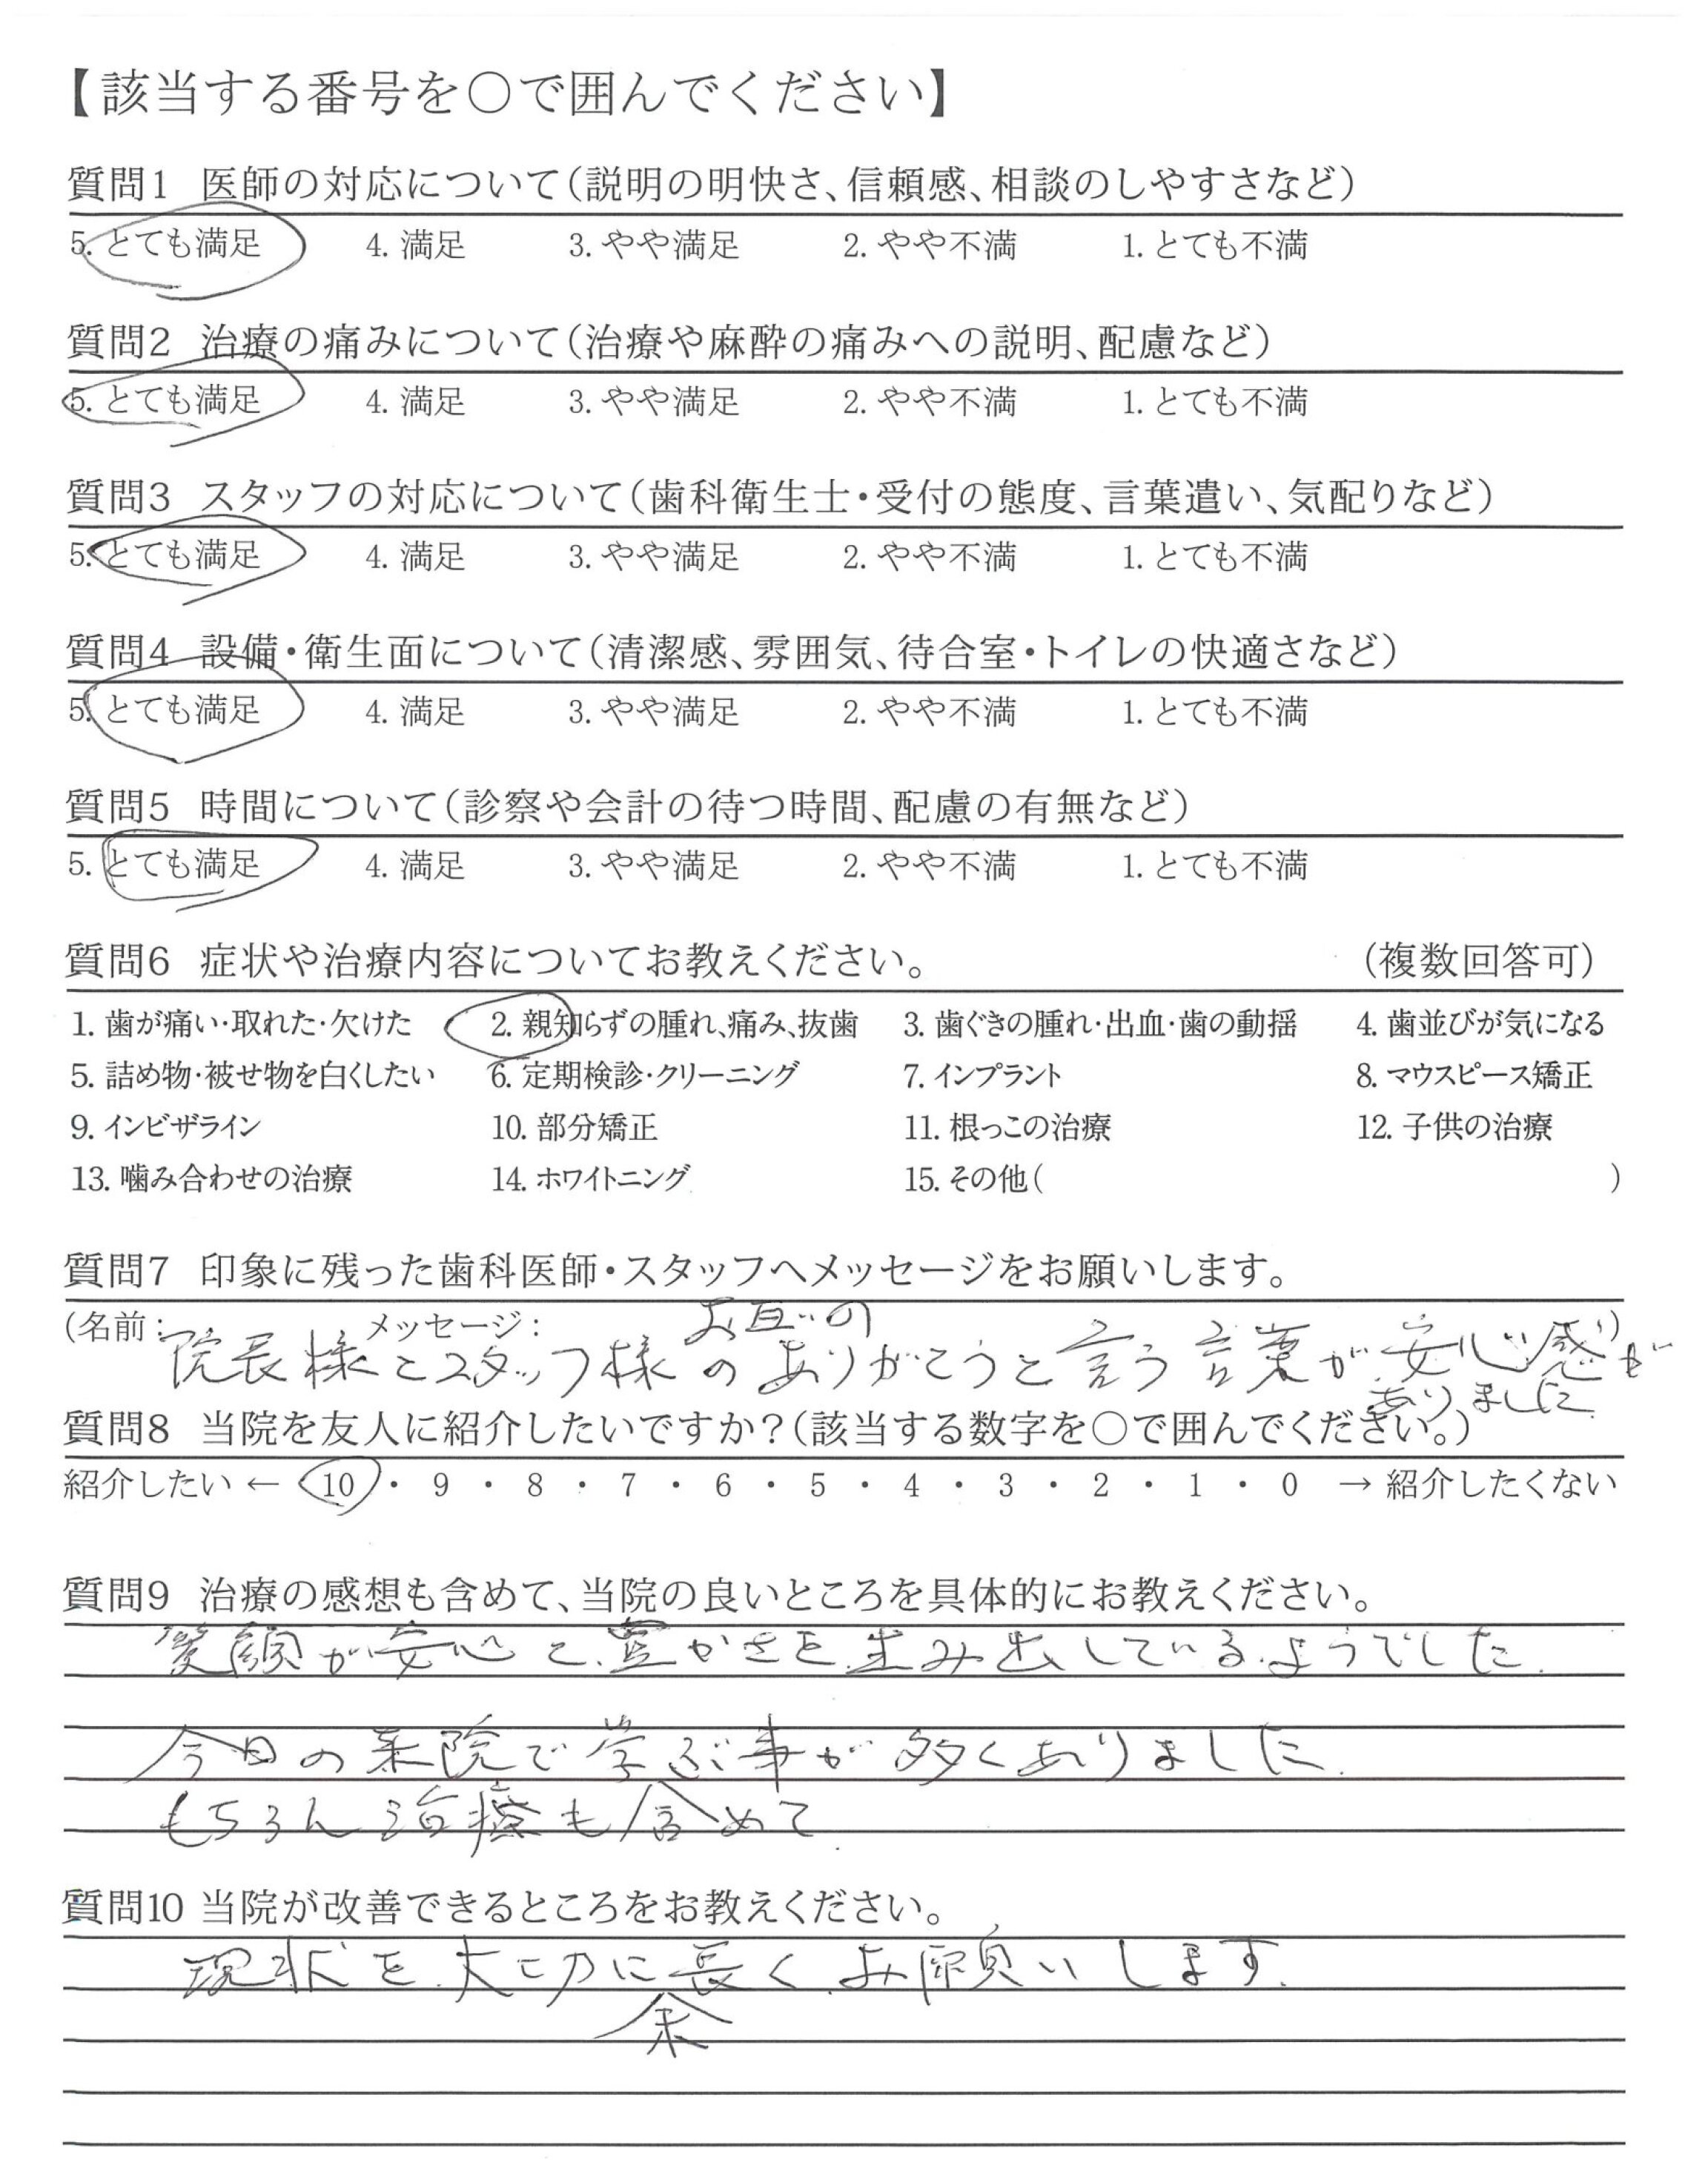 【該当する番号を○で囲んでください】
質問1 医師の対応について(説明の明快さ、信頼感、相談のしやすさなど)
5. とても満足 4. 満足 3. やや満足 2. やや不満 1. とても不満
質問2 治療の痛みについて(治療や麻酔の痛みへの説明、配慮など)
5. とても満足 4. 満足 3. やや満足 2. やや不満 1. とても不満
質問3 スタッフの対応について(歯科衛生士・受付の態度、言葉遣い、気配りなど)
5. とても満足 4. 満足 3. やや満足 2. やや不満 1. とても不満
質問4 設備・衛生面について(清潔感、雰囲気、待合室・トイレの快適さなど)
5. とても満足 4. 満足 3. やや満足 2. やや不満 1. とても不満
質問5 時間について(診察や会計の待つ時間、配慮の有無など)
5. とても満足 4. 満足 3. やや満足 2. やや不満 1. とても不満
質問6 症状や治療内容についてお教えください。 (複数回答可)
1. 歯が痛い・取れた・欠けた 2. 親知らずの腫れ、痛み、抜歯 3. 歯ぐきの腫れ・出血・歯の動揺 4. 歯並びが気になる
5. 詰め物・被せ物を白くしたい 6. 定期検診・クリーニング 7. インプラント 8. マウスピース矯正
9. インビザライン 10. 部分矯正 11. 根っこの治療 12. 子供の治療
13. 噛み合わせの治療 14. ホワイトニング 15. その他( )
質問7 印象に残った歯科医師・スタッフへメッセージをお願いします。
(名前: メッセージ: )
お互いの
院長様とスタッフ様のありがとうと言う言葉が安心感が
ありました
質問8 当院を友人に紹介したいですか?(該当する数字を○で囲んでください。)
紹介したい ← 10 ・ 9 ・ 8 ・ 7 ・ 6 ・ 5 ・ 4 ・ 3 ・ 2 ・ 1 ・ 0 → 紹介したくない
質問9 治療の感想も含めて、当院の良いところを具体的にお教えください。
笑顔が安心と豊かさを生み出しているようでした.
今日の来院で学ぶ事が多くありました.
もちろん治療も含めて.
質問10 当院が改善できるところをお教えください。
現状を大切に長くお願いします.